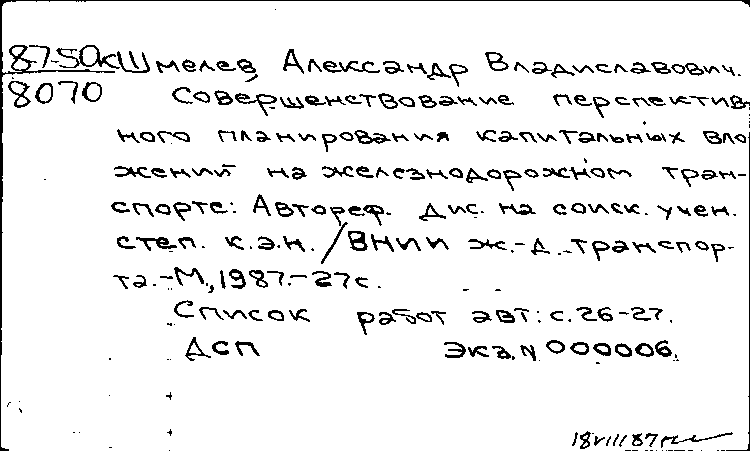 87-50к Шмелев, Александр Владиславович.
8070 Совершенствование перспектив-
ного планирования капитальных вло
жений на железнодорожном тран-
спорте: Автореф. дис. на соиск. учен.
степ. к.э.н. /ВНИИ ж.-д. транспор-
та.-М., 1987.-27с.
Список работ авт.: с.26-27.
ДСП Экз. N 000006.
18VIII87